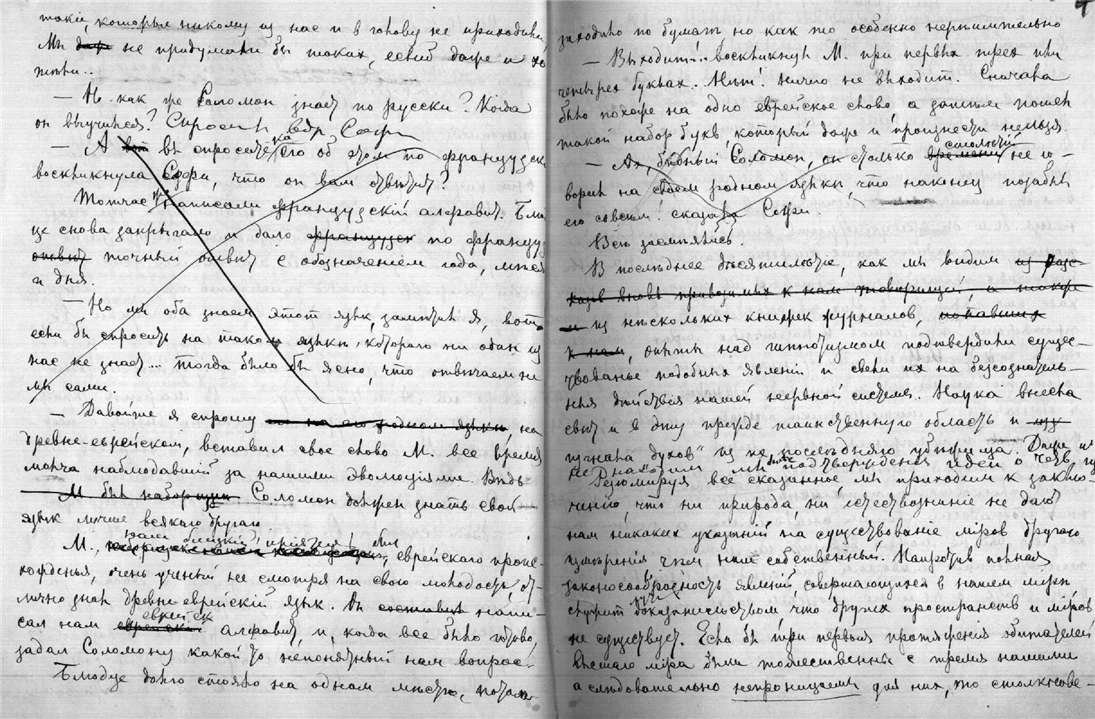 такія, которыя никому из нас и в голову не приходили,
Мы даже не придумали бы таких, еслиб даже и хо
тѣли..
— Но как же Соломон знает по русски? Когда
он выучился? Спросила вдр. Софи
— А вы спросите-ка его об этом по французски
воскликнула Софи, что он вам отвѣтит?
Тотчас написали французскій алфавит. Блюд
це снова запрыгало и дало французск по француз
отвѣт точный отвѣт с обозначением года, мѣсяц
и дня.
— Но мы оба знаем этот язык, замѣтил я, вот
если бы спросить на таком языкѣ, котораго ни один из
нас не знает... тогда было бы ясно, что отвѣчаем не
мы сами.
— Давайте я спрошу на его родном языкѣ, на
древне-еврейском, вставил свое слово М. все время
молча наблюдавшій за нашими эволюціями. Вѣдь
Соломон должен знать свой
язык лучше всякаго другаго
М., нам близкій пріятель, был еврейскаго проис
хожденья, очень ученый не смотря на свою молодость, от
лично знал древне еврейскій язык. Он составил напи
сал нам еврейск алфавит и, когда все было готово,
задал Соломону какой то непонятный нам вопрос.
Блюдце долго стояло на одном мѣстѣ, потом
4
заходило по бумагѣ но как то особенно нерѣшительно
— Выходит!.. воскликнул М. при первых трех или
четырех буквах. Нѣт! Ничего не выходит. Сначала
было похоже на одно еврейское слово а затѣм пошел
такой набор букв, который даже и произнести нельзя.
— Ах, бѣдный Соломон, он столько времени столѣтій не го-
ворил на своем родном языкѣ что наконец позабыл
его совсѣм! сказала Софи.
Всѣ засмѣялись.
В послѣднее десятилѣтіе, как мы видим из разс-
казов вновь приводимых к нам товарищей, а также
и из нѣскольких книжек журналов, попавших
к нам, опыты над гипнотизмом подтвердили суще-
ствованье подобных явленій и свели их на безсознатель-
ныя дѣйствія нашей нервной системы. Наука внесла
свѣт и в эту прежде таинственную область и
изгнала „духов“ из их послѣдняго убѣжища. Даже и
не находим мы подтвержденія идеи о четв. из
Резюмируя все сказанное мы приходим к заклю-
ченію, что ни природа ни естествознаніе не дают
нам никаких указаній на существованіе міров другаго
измѣренія чѣм наш собственный. Напротив полная
законосообразность явленій совершающихся в нашем мірѣ
служит доказательством что других пространств и міров
не существует. Если бы три первыя протяженія обитателей
высшаго міра были тожественны с тремя нашими
а слѣдовательно непроницаемы для них, то столкнове-